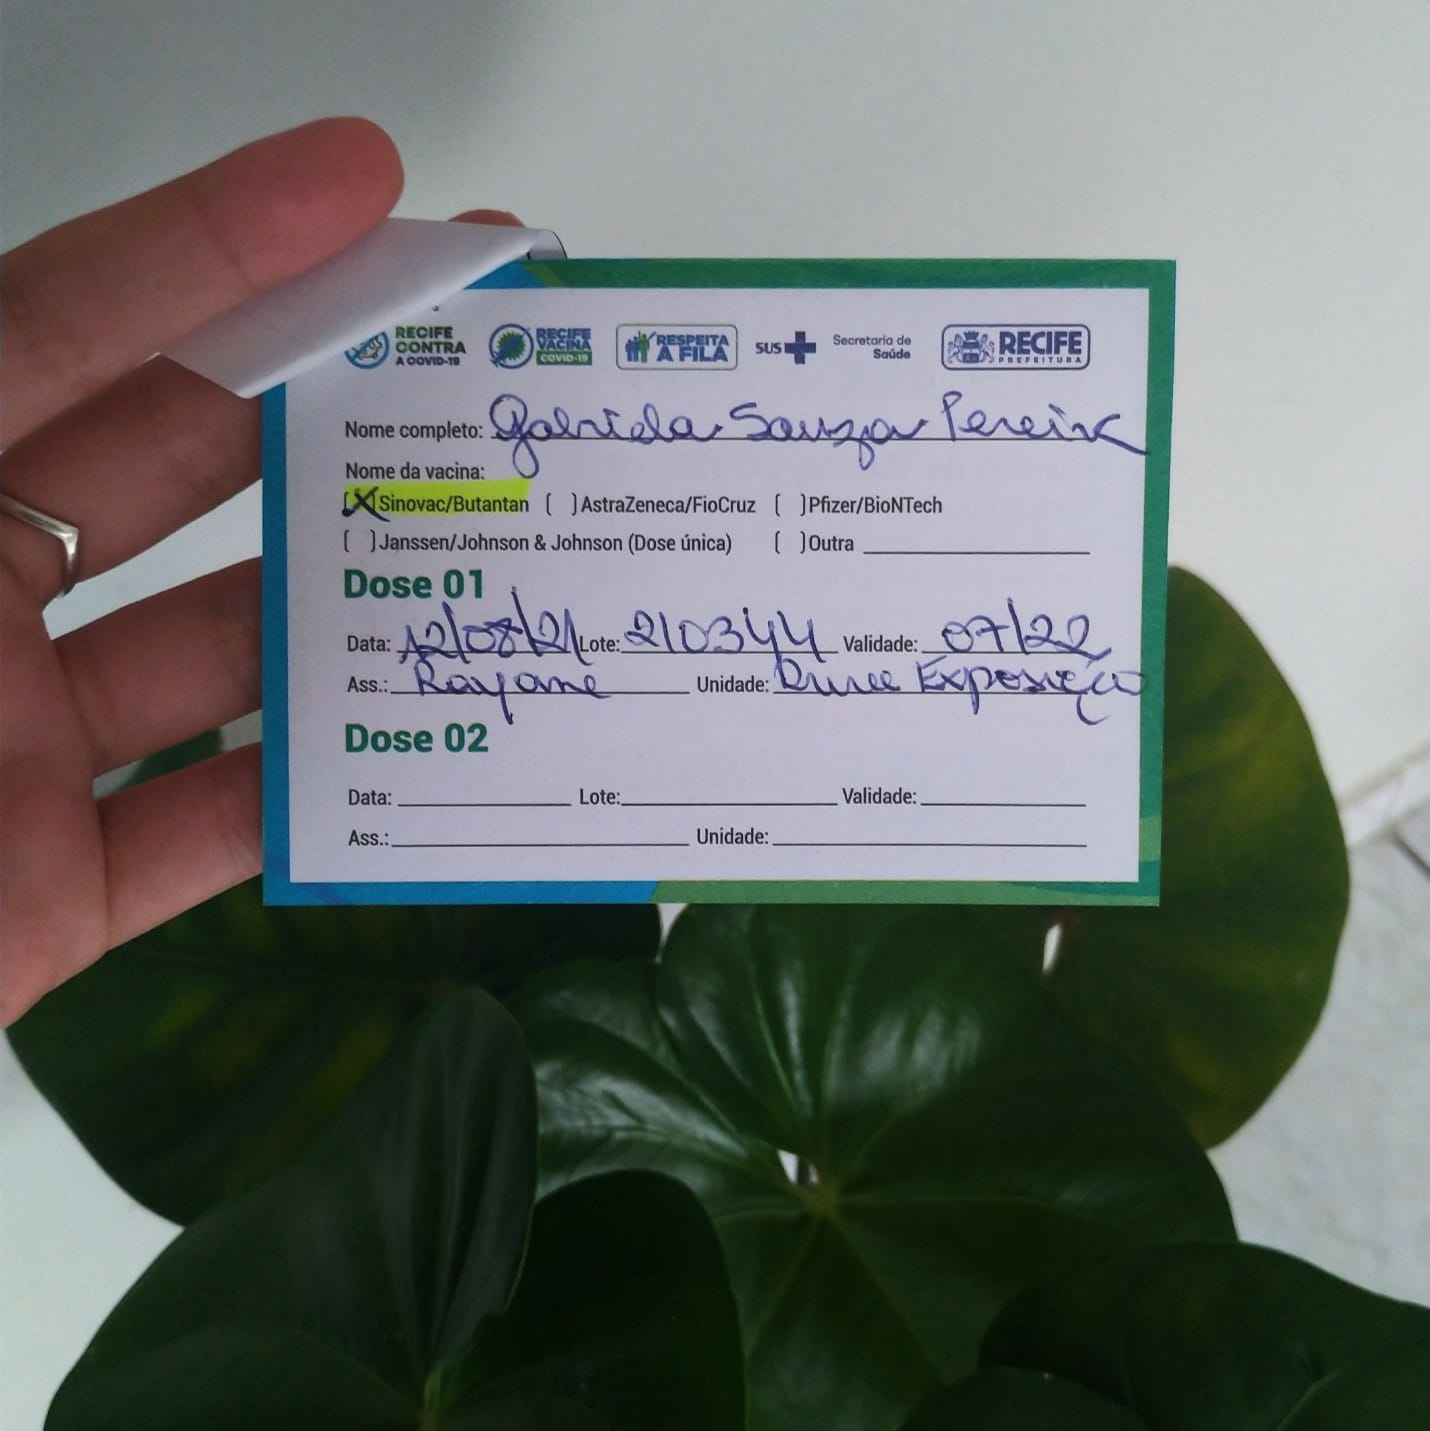 RECIFE CONTRA A COVID-19 RECIFE VACINA COVID-19 RESPEITA A FILA SUS Secretaria de Saúde RECIFE PREFEITURA
Nome completo: Gabriela Souza Pereira
Nome da vacina:
(X)Sinovac/Butantan ( )AstraZeneca/FioCruz ( )Pfizer/BioNTech
( )Janssen/Johnson & Johnson (Dose única) ( )Outra
Dose 01
Data: 12/08/21 Lote: 210344 Validade: 07/22
Ass.: Rayane Unidade: Exposição
Dose 02
Data: Lote: Validade:
Ass.: Unidade: